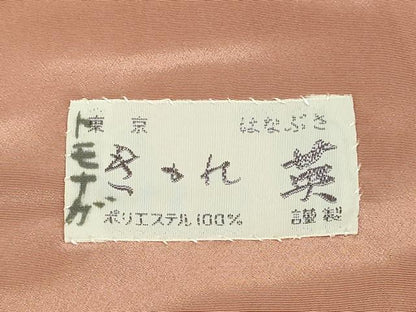 東京 はなぶさ
きかれ 英
ポリエステル100% 謹製
トモナガ